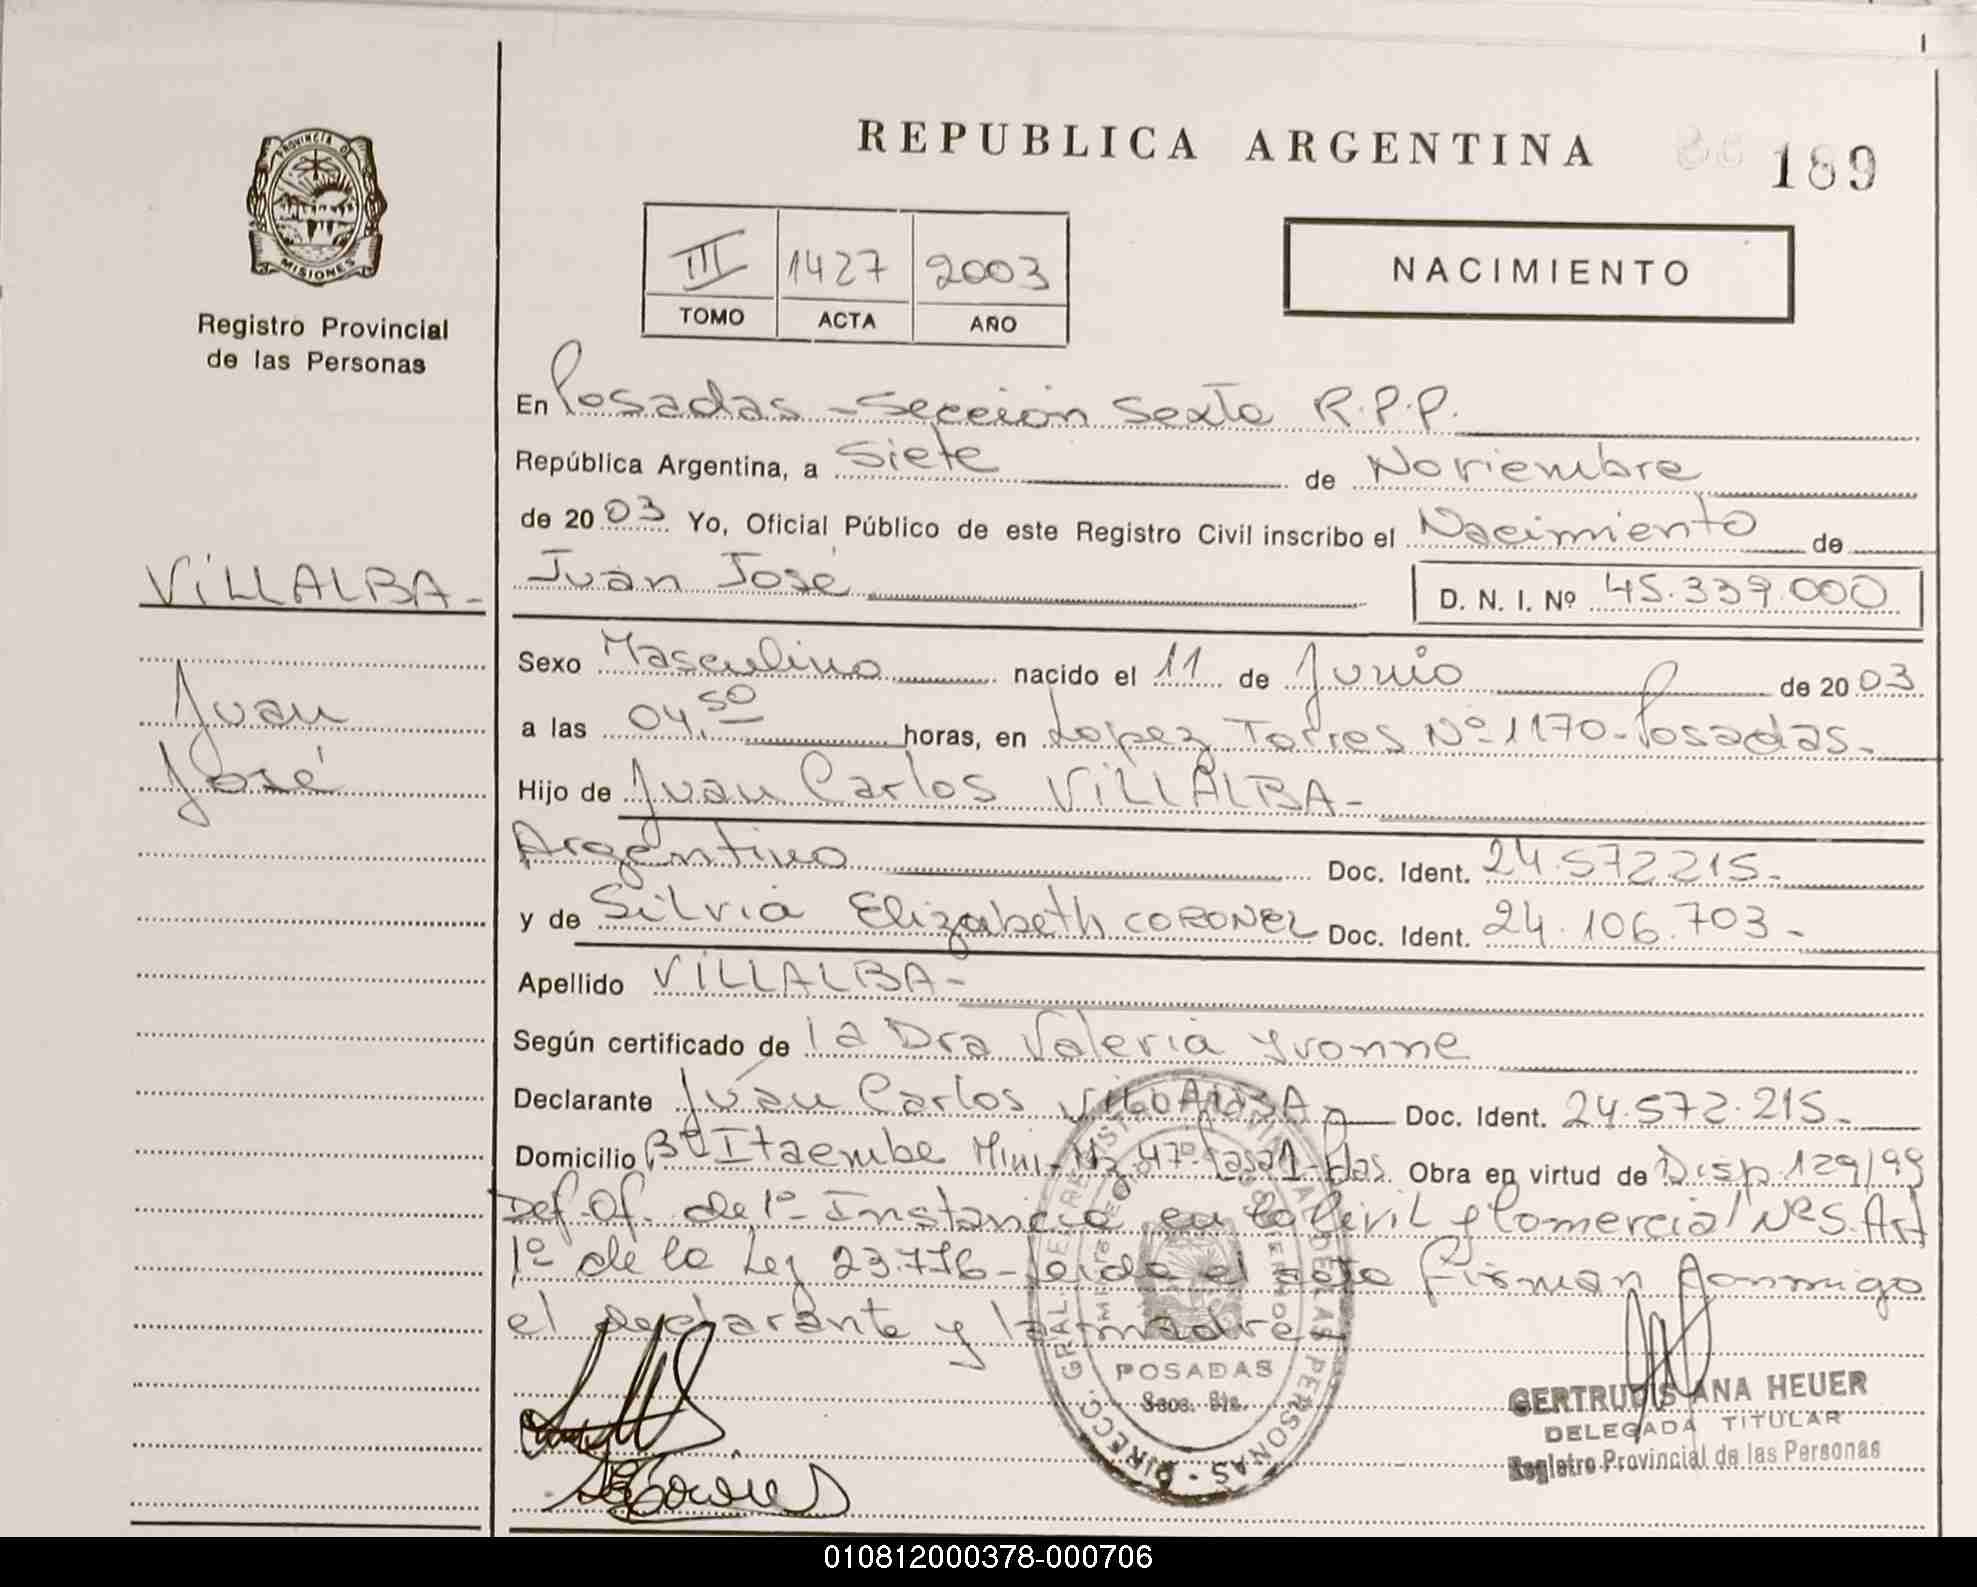 REPUBLICA ARGENTINA
189
PROVINCIA DE
MISIONES
Registro Provincial
de las Personas
III 1427 2003
TOMO ACTA AÑO
NACIMIENTO
En Posadas - Sección Sexta R.P.P.
República Argentina, a Siete de Noviembre
de 2003 Yo, Oficial Público de este Registro Civil inscribo el Nacimiento de
VILLALBA-
Juan José D. N. I. Nº 45.339.000
Sexo Masculino nacido el 11 de Junio de 2003
Juan
a las 04,50 horas, en Lopez Torres Nº 1170-Posadas-
José
Hijo de Juan Carlos VILLALBA-
Argentino Doc. Ident. 24.572.215-
y de Silvia Elizabeth CORONEL Doc. Ident. 24.106.703-
Apellido VILLALBA-
Según certificado de la Dra Valeria Yvonne
Declarante Juan Carlos VILLALBA Doc. Ident. 24.572.215-
Domicilio Bº Itaembe Mini-Mz 47º Casa 1-Pdas. Obra en virtud de Disp. 129/99
Def. Of. de 1º Instancia en lo Civil y Comercial Nº 5. Art
1º de la Ley 23.776-Leida el acta firman conmigo
el declarante y la madre
POSADAS
Secc. 6ta.
GERTRUDIS ANA HEUER
DELEGADA TITULAR
Registro Provincial de las Personas
010812000378-000706